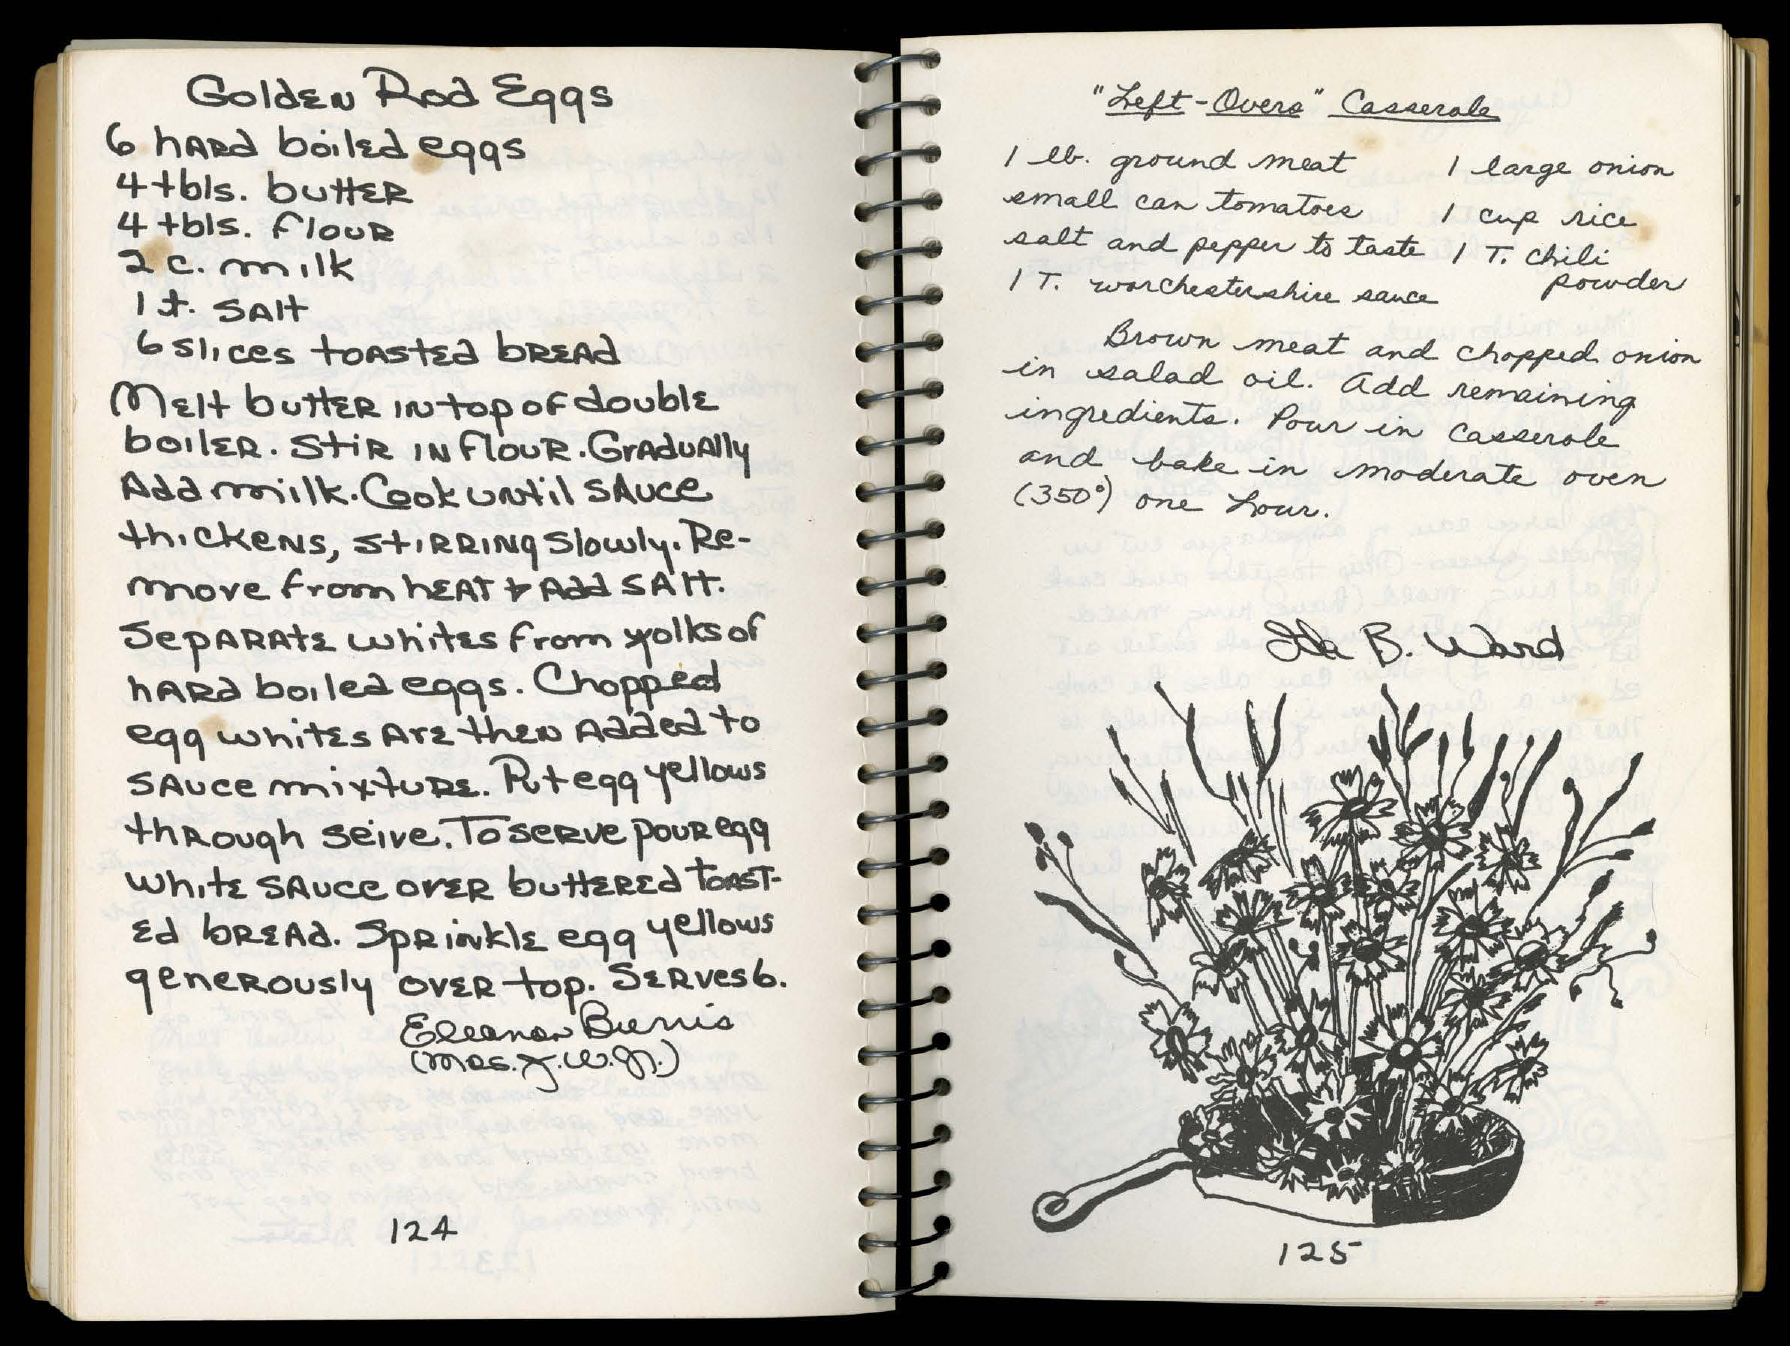 Golden Rod Eggs
6 hard boiled eggs
4 tbls. butter
4 tbls. flour
2 c. milk
1 t. salt
6 slices toasted bread
Melt butter in top of double
boiler. Stir in flour. Gradually
Add milk. Cook until sauce
thickens, stirring slowly. Re-
move from heat & Add salt.
Separate whites from yolks of
hard boiled eggs. Chopped
egg whites are then added to
sauce mixture. Put egg yellows
through seive. To serve pour egg
white sauce over buttered toast-
ed bread. Sprinkle egg yellows
generously over top. Serves 6.
Eleanor Burris
(Mrs. J. W. Jr.)
124
"Left-Overs" Casserole
1 lb. ground meat 1 large onion
small can tomatoes 1 cup rice
salt and pepper to taste 1 T. chili
powder
1 T. worchestershire sauce
Brown meat and chopped onion
in salad oil. Add remaining
ingredients. Pour in casserole
and bake in moderate oven
(350°) one hour.
Ida B. Ward
125